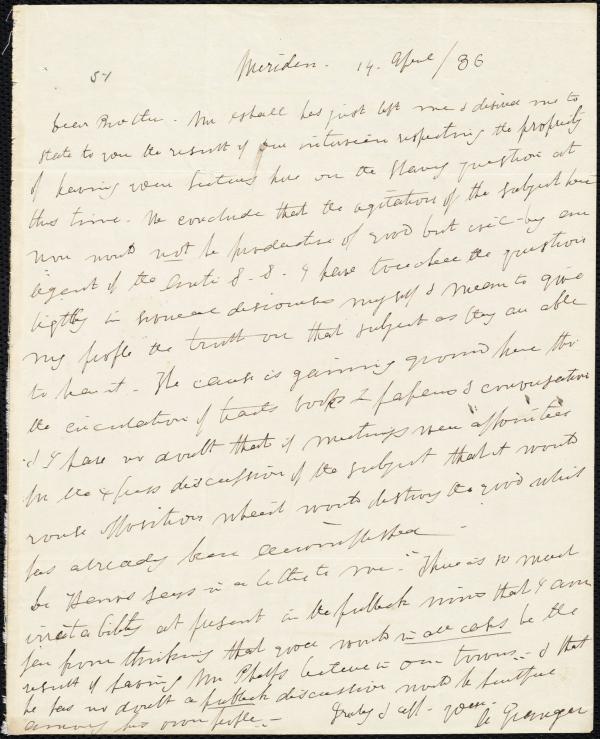 Meriden. 14. April / 36
Dear Brother. Mr has just left me & desired me to
state to you the result of our interview respecting the propriety
of having your lectures here on the Slavery question at
this time. We conclude that the agitation of the subject here
now would not be productive of good but evil - by an
agent of the Anti S. S. I have touched the question
lightly in several discourses myself & mean to give
my people the truth on that subject as they are able
to hear it. The cause is gaining ground here thro
the circulation of tracts books & papers & conversation
& I have no doubt that if meetings were appointed
for the express discussion of the subject that it would
rouse opposition which would destroy the good which
has already been accomplished -
Dr says in a letter to me - "There is so much
irritability at present in the publick mind that I am
far from thinking that good would in all cases be the
result of having Mr Phelps lecture in our towns" - & that
he has no doubt a publick discussion would be hurtful
among his own people. -
Truly & aff. yours
A Granger